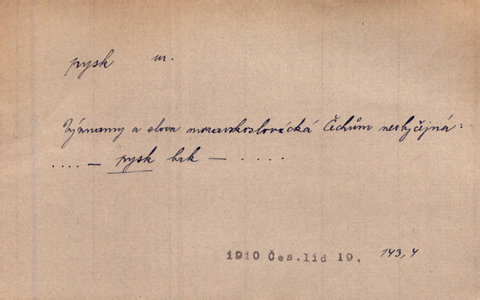 pysk m.
Významy a slova moravskoslovácká Čechům neobyčejná:
.... — pysk brk — ....
1910 Čes.lid 19. 143,4